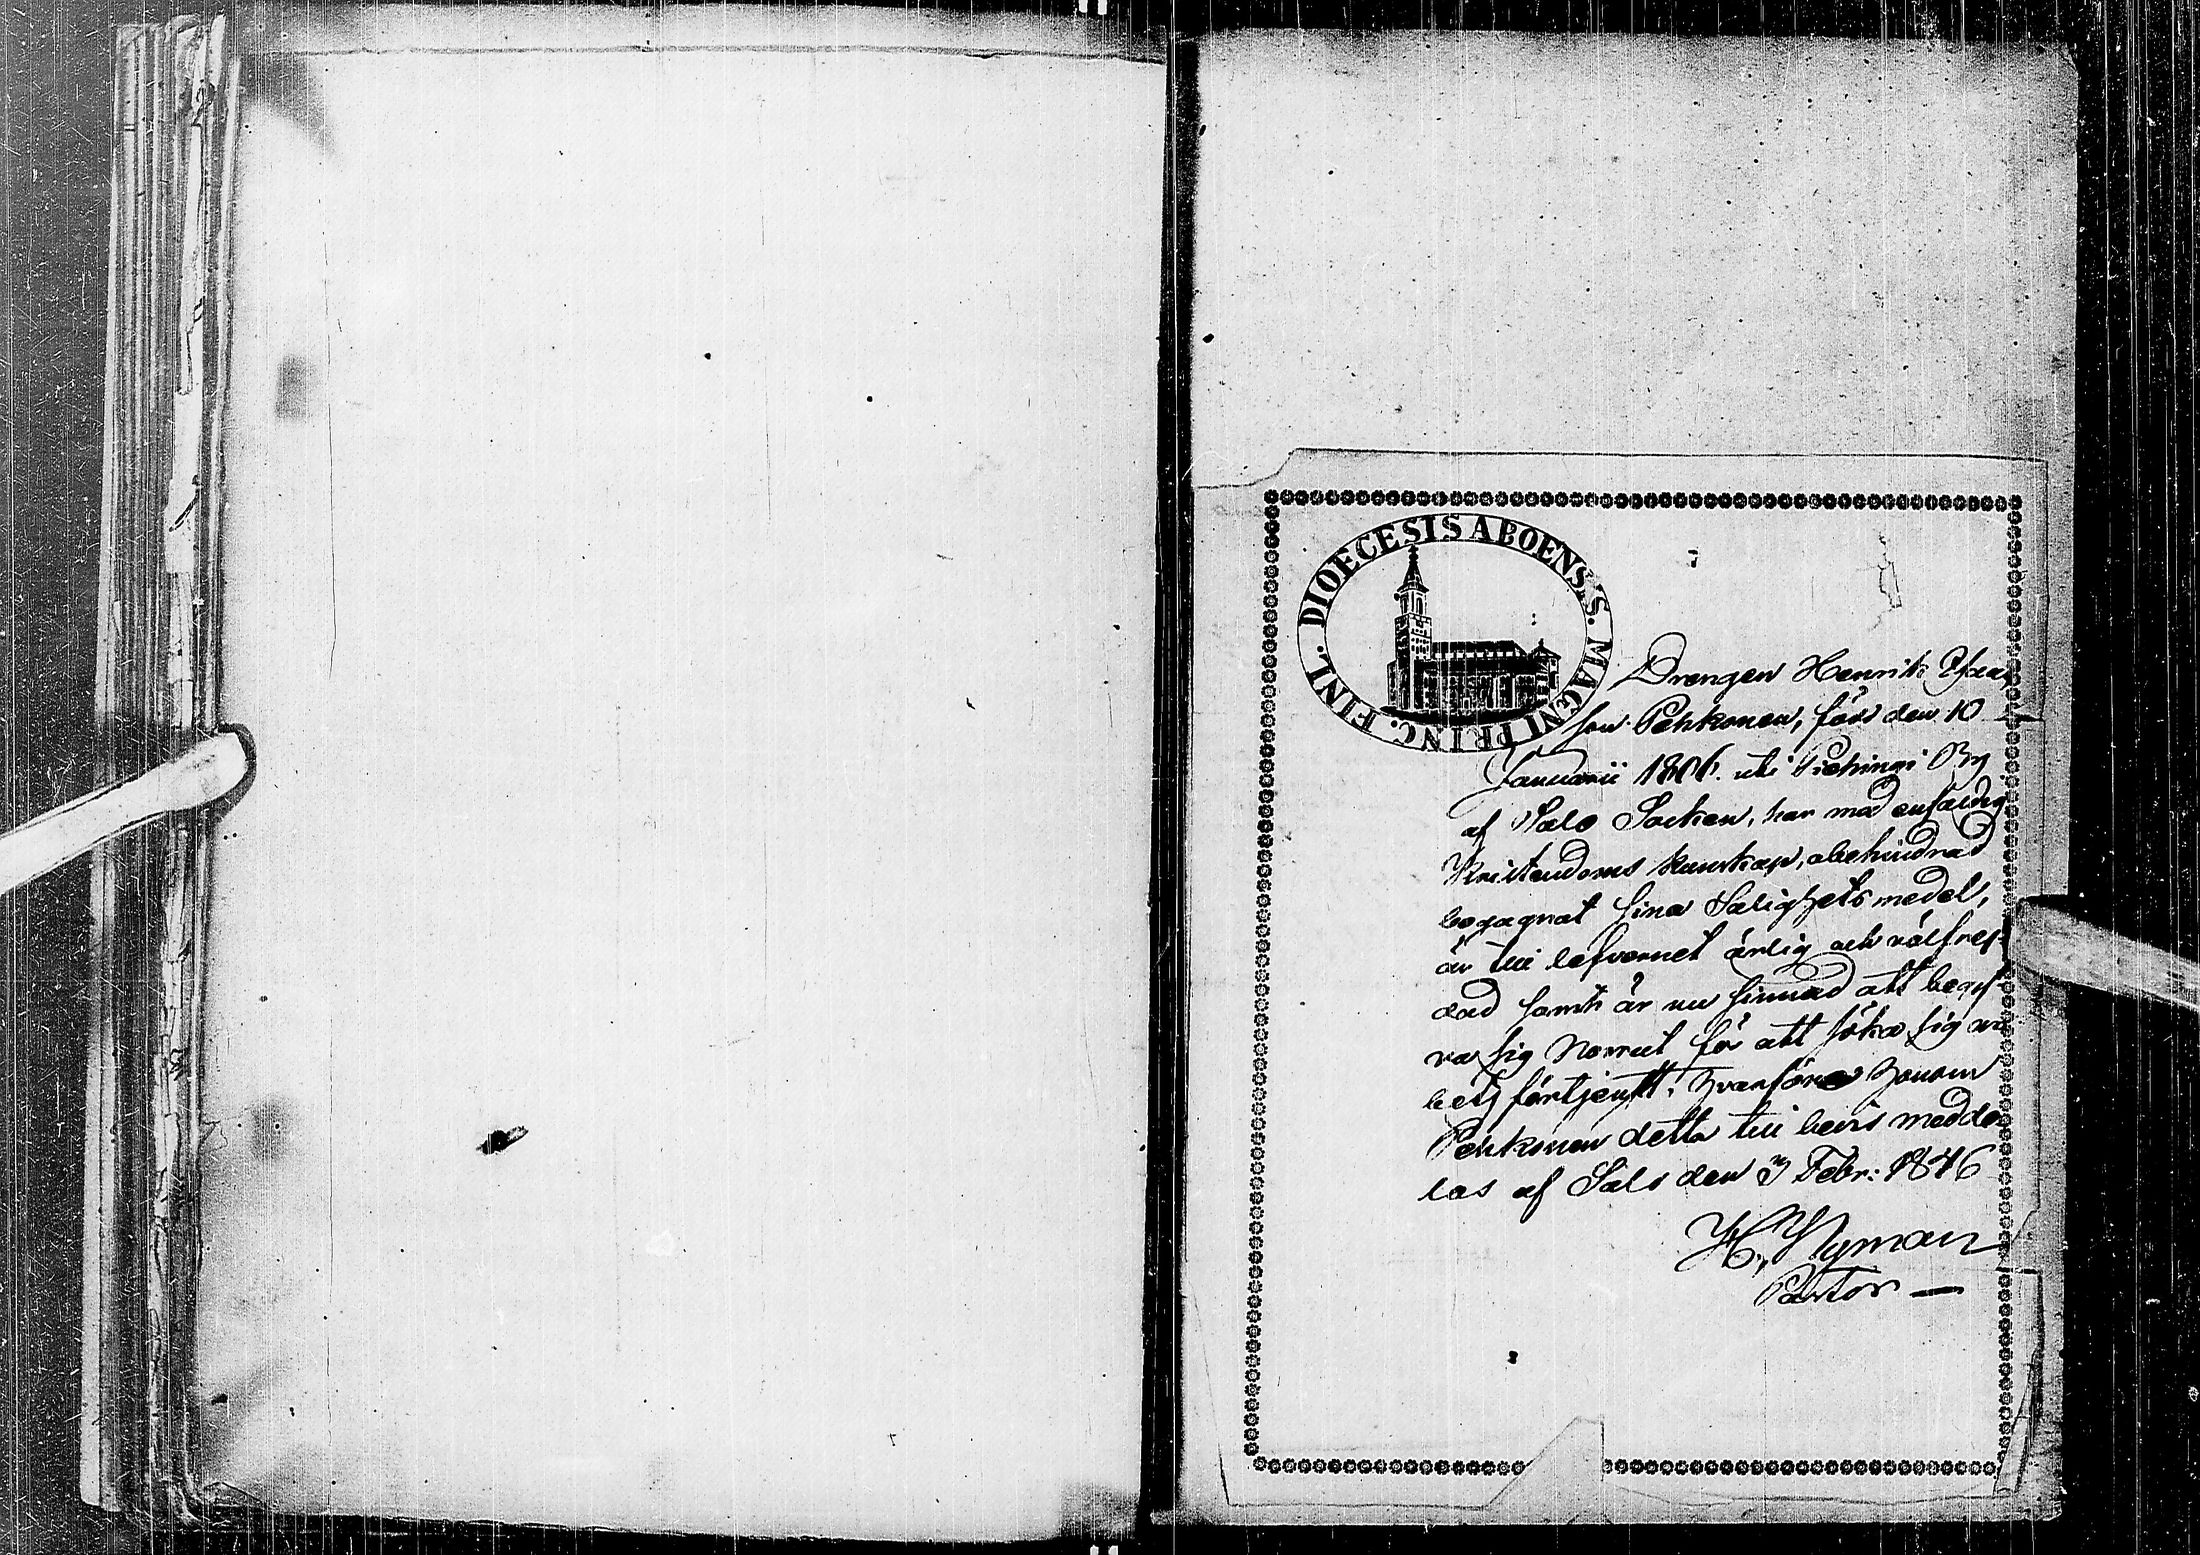 DIOECESIS ABOENSIS. MAGNI PRINC. FINL.
Drengen Henrik Isaks
son Pehkonen, född den 10
Januarii 1806. uti Piehingi By
af Salo Socken, har med enfaldig
Kristendoms kunskap, obehindrad
begagnat sina Salighets medel,
är till lefvernet ärlig och välfrej-
dad samt är nu sinnad att begif-
va sig Norrut för att söka sig ar-
bets förtjenst; hvarföre honom
Pehkonen detta till bevis medde-
las af Salo den 3 Febr: 1846
H. Nyman
Pastor —